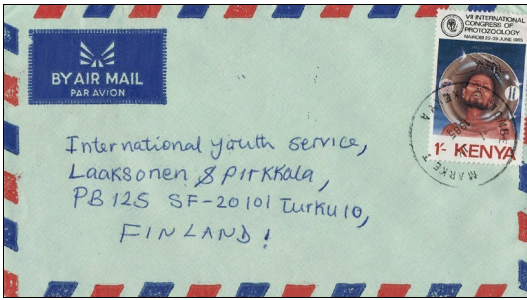 BY AIR MAIL
PAR AVION
VII INTERNATIONAL
CONGRESS OF
PROTOZOOLOGY
NAIROBI 22-29 JUNE 1985
1/- KENYA
MARKET
KENYA
1985
International youth service,
Laaksonen & Pirkkala,
PB 125 SF-20101 Turku 10,
FINLAND!